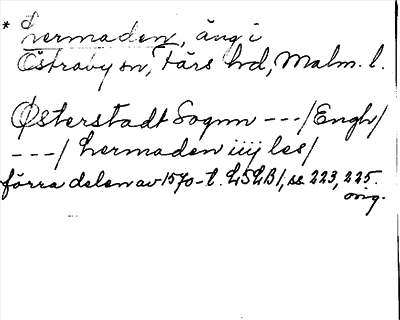 * Lermaden, äng i
Östraby sn, Färs hd, Malm. l.
Østerstadt Sognn --- / Engh /
--- / Lermaden iiij les /
förra delen av 1570-t. LSLB 1, ss. 223, 225.
orig.